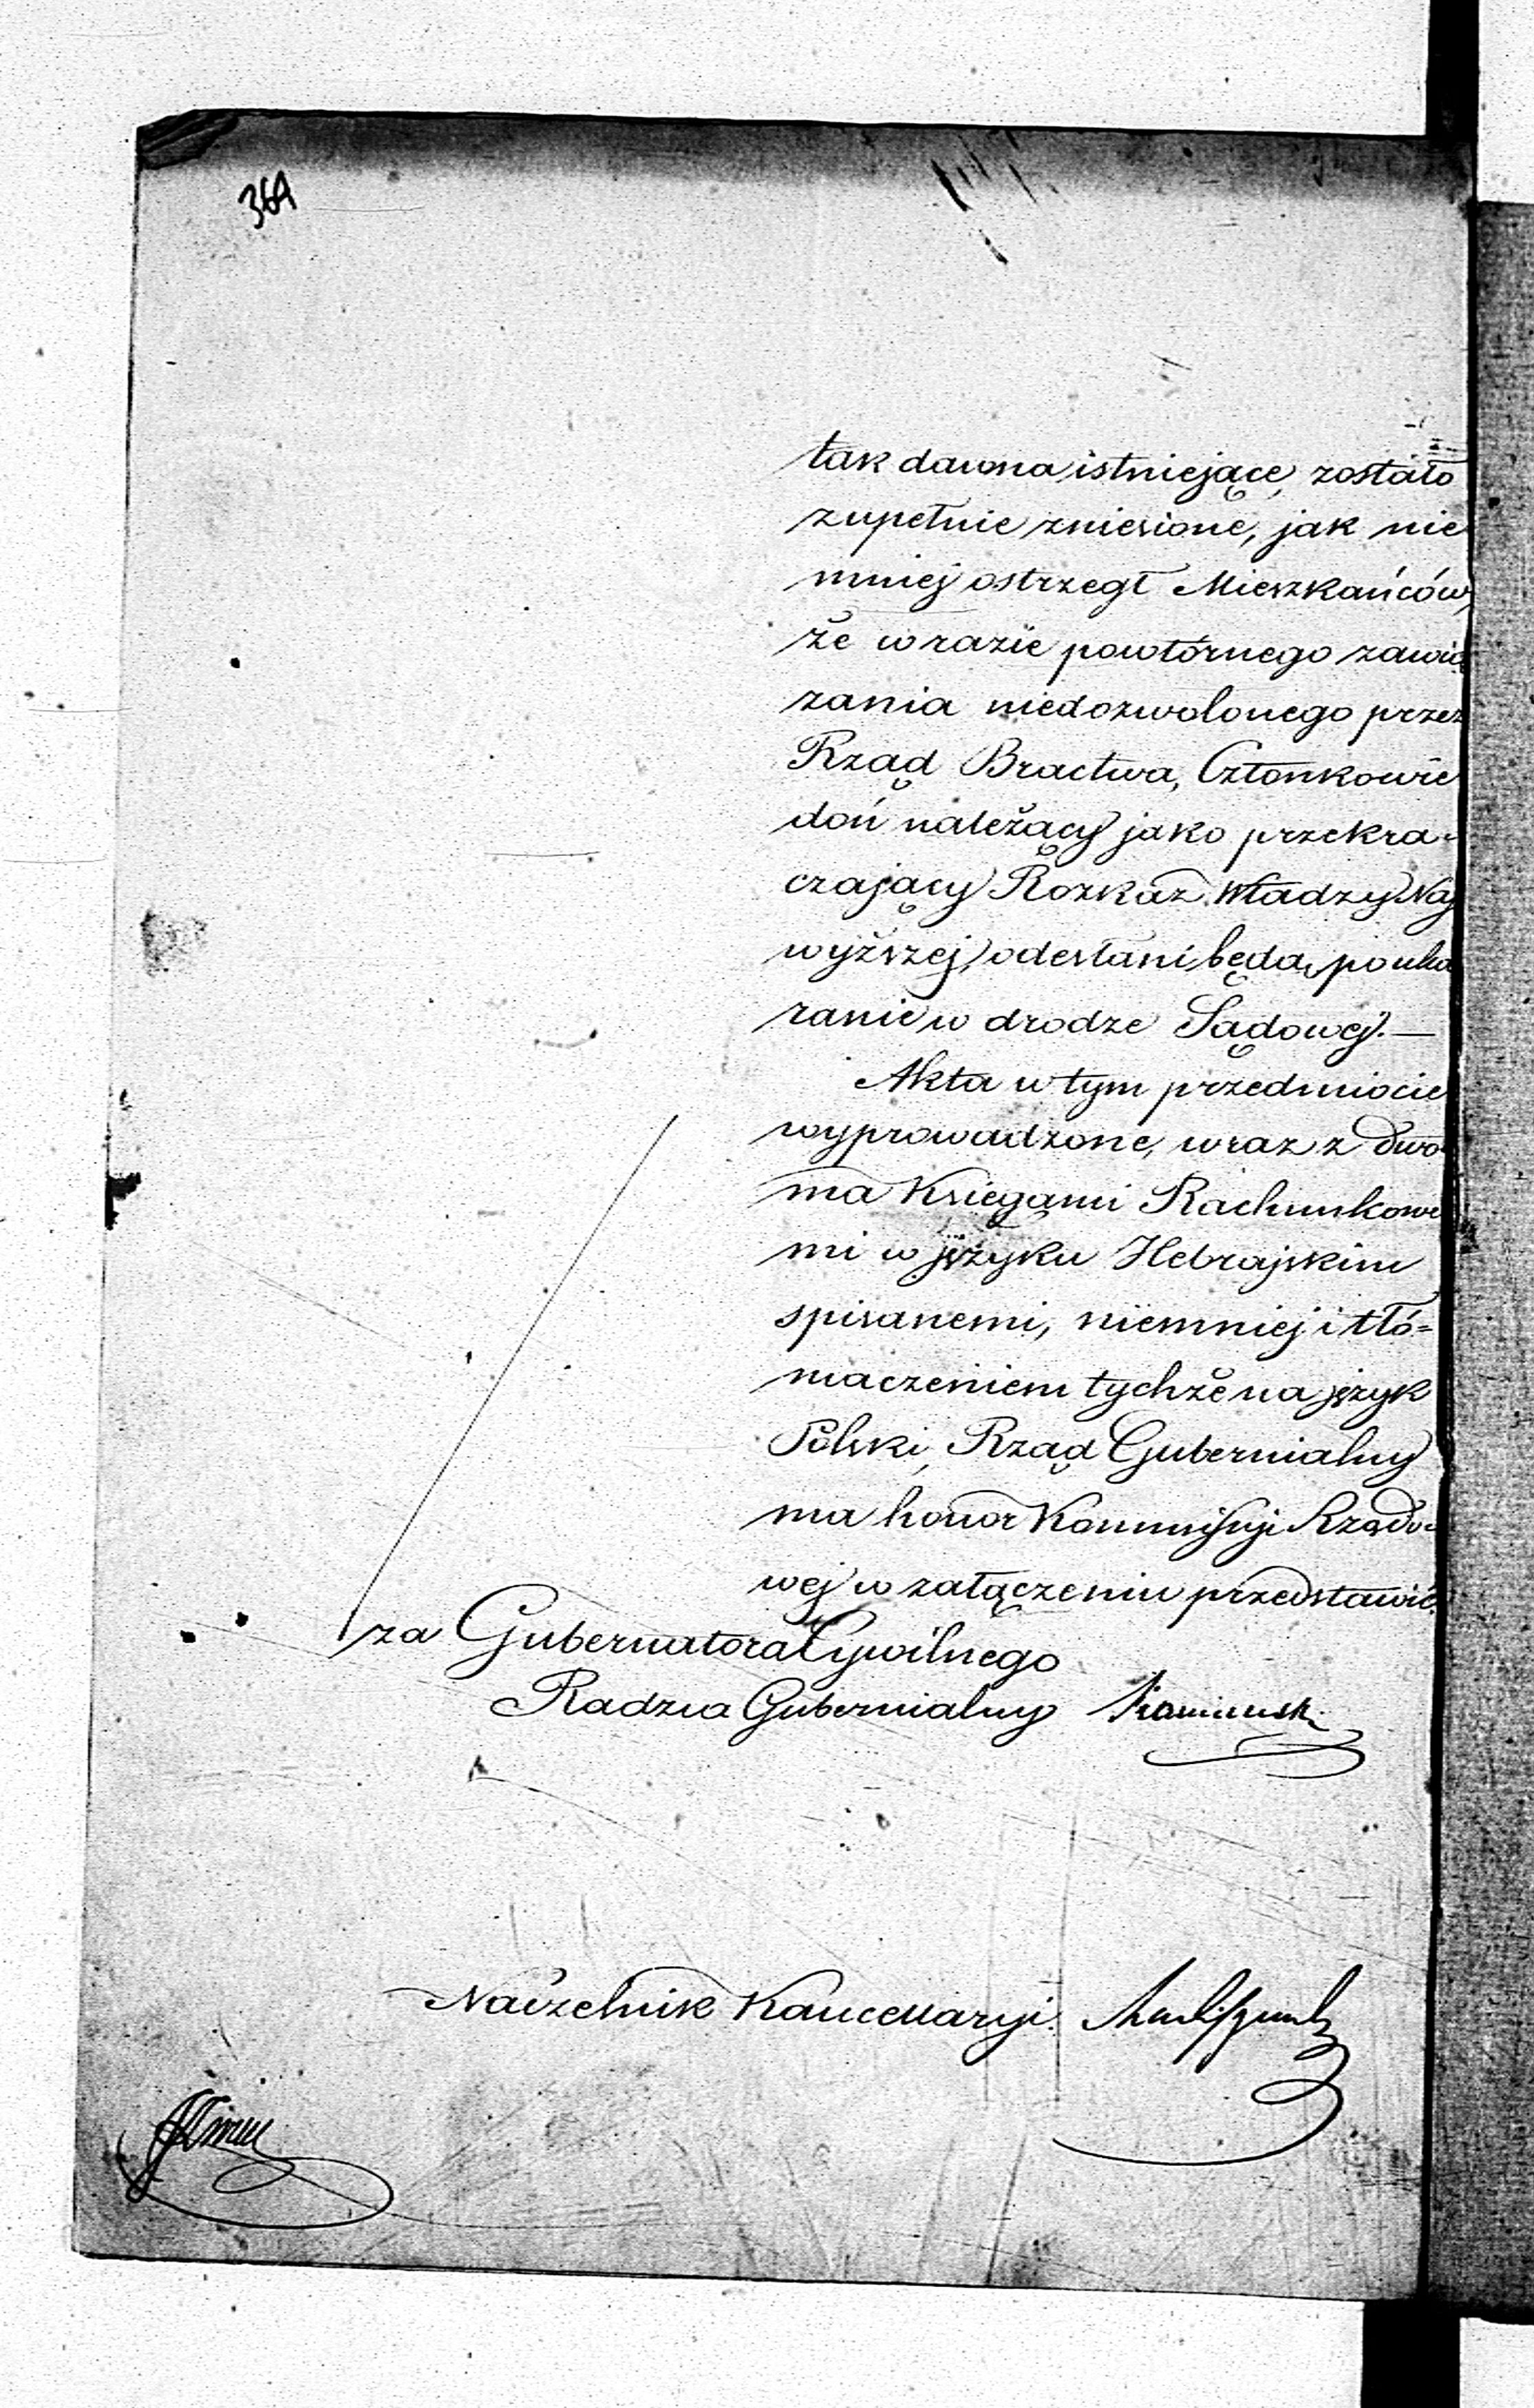 369
tak dawna istniejące, zostało
zupełnie zniesione, jak nie
mniej ostrzegł Mieszkańców,
że w razie powtórnego zawią
zania niedozwolonego przez
Rząd Bractwa, Członkowie
doń należący jako przekra-
czający Rozkaz Władzy Naj
wyższej, odesłani będą, po uka
ranie w drodze Sądowej. —
Akta w tym przedmiocie
wyprowadzone, wraz z dwo-
ma Księgami Rachunkowe
mi w języku Hebrajskim
spisanemi, niemniej i tłó=
maczeniem tychże na język
Polski, Rząd Gubernialny
ma honor Kommissyi Rządo-
wej w załączeniu przedstawić.
za Gubernatora Cywilnego
Radzca Gubernialny Kamiński
Naczelnik Kancellaryi.